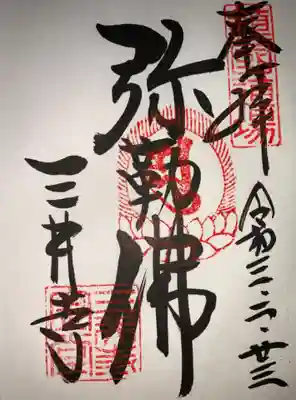 奉拝
令和三・二・廿三
弥勒佛
三井寺